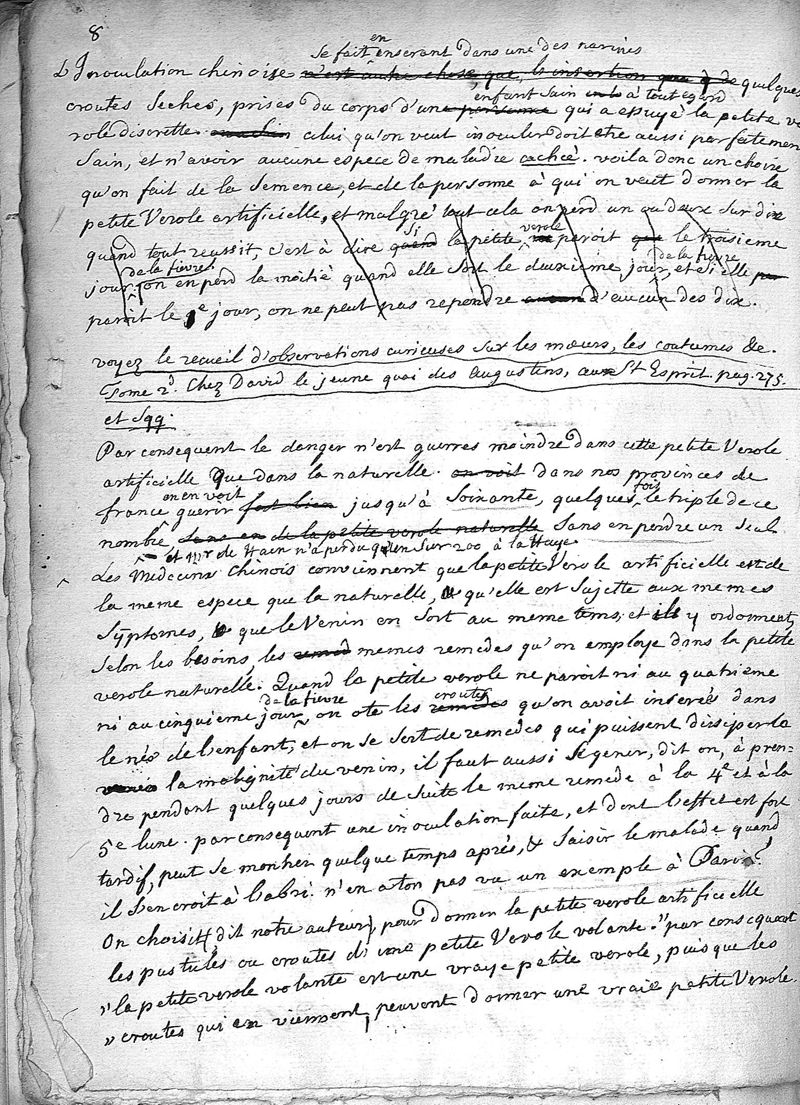 8
en
se fait inserant dans une des narines
L'Inoculation chinoise n'est autre chose que l'insertion de quelques
enfant sain à tout egard
croutes seches, prises du corps d'une personne qui a essuyé la petite ve
role discrette. celui qu'on veut inoculer doit etre aussi parfaitement
sain, et n'avoir aucune espece de maladie cachée. voila donc un choix
qu'on fait de la semence, et de la personne à qui on veut donner la
petite verole artificielle, et malgré tout cela on perd un ou deux sur dix
si verole
quand tout reussit, c'est à dire quand la petite paroit que le troisieme
de la fievre de la fievre
jour, on en perd la moitié quand elle sort le deuxieme jour, et si elle
paroit le 1e jour, on ne peut pas rependre d'aucun des dix.
voyez le recueil d'observations curieuses sur les mœurs, les coutumes &c.
Tome 2d. Chez David le jeune quai des Augustins, aux St Esprit. pag. 275.
et sqq.
Par consequent le danger n'est guerres moindre dans cette petite Verole
artificielle que dans la naturelle. on voit dans nos provinces de
en en voit fois
france guerir fort bien jusqu'à soixante, quelques le triple de ce
nombre sans en de la petite verole naturelle sans en perdre un seul
et Mr de Hain n'a perdu qu'un sur 200 à la Haye.
Les Medecins Chinois conviennent que la petite Verole artificielle est de
la meme espece que la naturelle, & qu'elle est sujette aux memes
symptomes, & que le Venin en sort au meme tems, et ils y ordonnent,
selon les besoins, les remed memes remedes qu'on employe dans la petite
verole naturelle. Quand la petite verole ne paroit ni au quatrieme
de la fievre croutes
ni au cinquieme jour on ote les remedes qu'on avoit inserés dans
le nés de l'enfant, et on se sert de remedes qui puissent dissiper la
la malignité du venin, il faut aussi se gener, dit on, à pren-
dre pendant quelques jours de suite le meme remede à la 4e et à la
5e lune. par consequent une inoculation faite, et dont l'effet est fort
tardif, peut se montrer quelque temps aprés, & saisir le malade quand
il s'en croit à l'abri. n'en a ton pas vu un exemple à Paris?
On choisit (dit notre auteur) pour donner la petite verole artificielle
les pustules ou croutes d'une petite Verole volante. "par consequent
" la petite verole volante est une vraye petite verole, puisque les
" croutes qui en viennent, peuvent donner une vraie petite Verole.